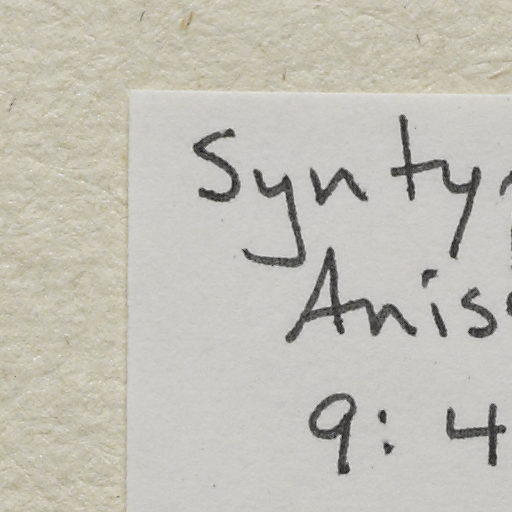 Synty
Anis
9: 4